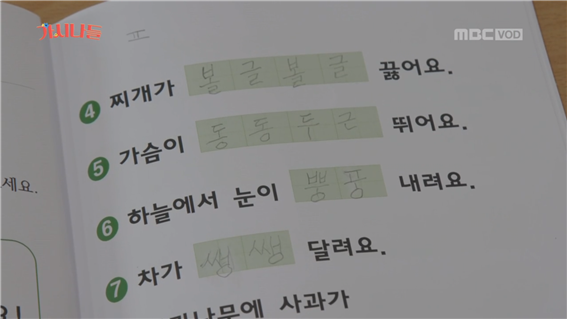 가시나들
MBC VOD
ㅍ
4 찌개가 볼글볼글 끓어요.
5 가슴이 동동두근 뛰어요.
세요.
6 하늘에서 눈이 뿡풍 내려요.
7 차가 쌩쌩 달려요.
나무에 사과가